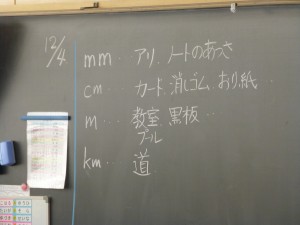 12/4
mm… アリ、ノートのあつさ
cm… カード、消しゴム、おり紙…
m… 教室、黒板…
プール
km… 道